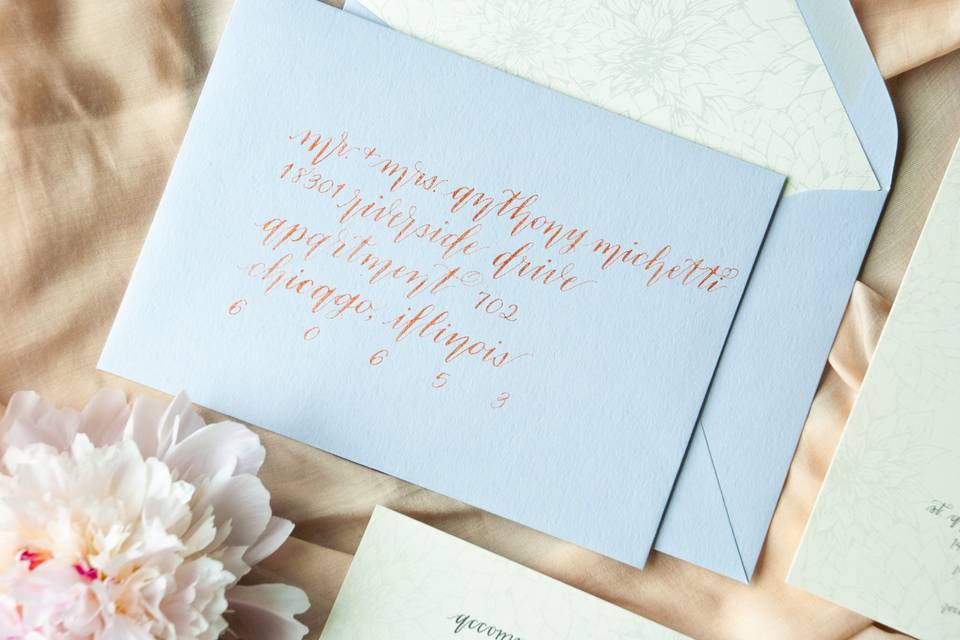 mr. + mrs. anthony michetti
18301 riverside drive
apartment 702
chicago, illinois
6 0 6 5 3